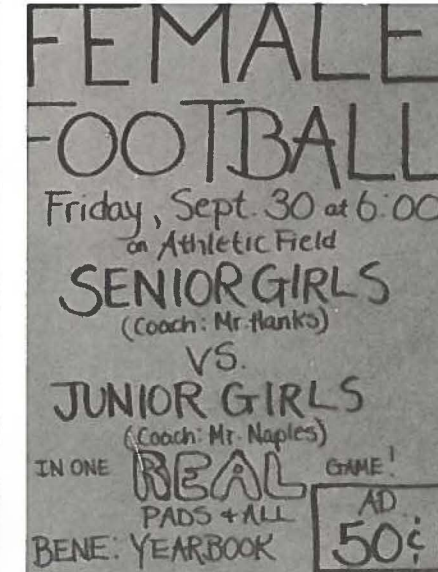 FEMALE
FOOTBALL
Friday, Sept. 30 at 6:00
on Athletic Field
SENIOR GIRLS
(Coach: Mr. Hanks)
VS.
JUNIOR GIRLS
(Coach: Mr. Naples)
IN ONE REAL GAME!
PADS + ALL
BENE: YEARBOOK
AD
50¢